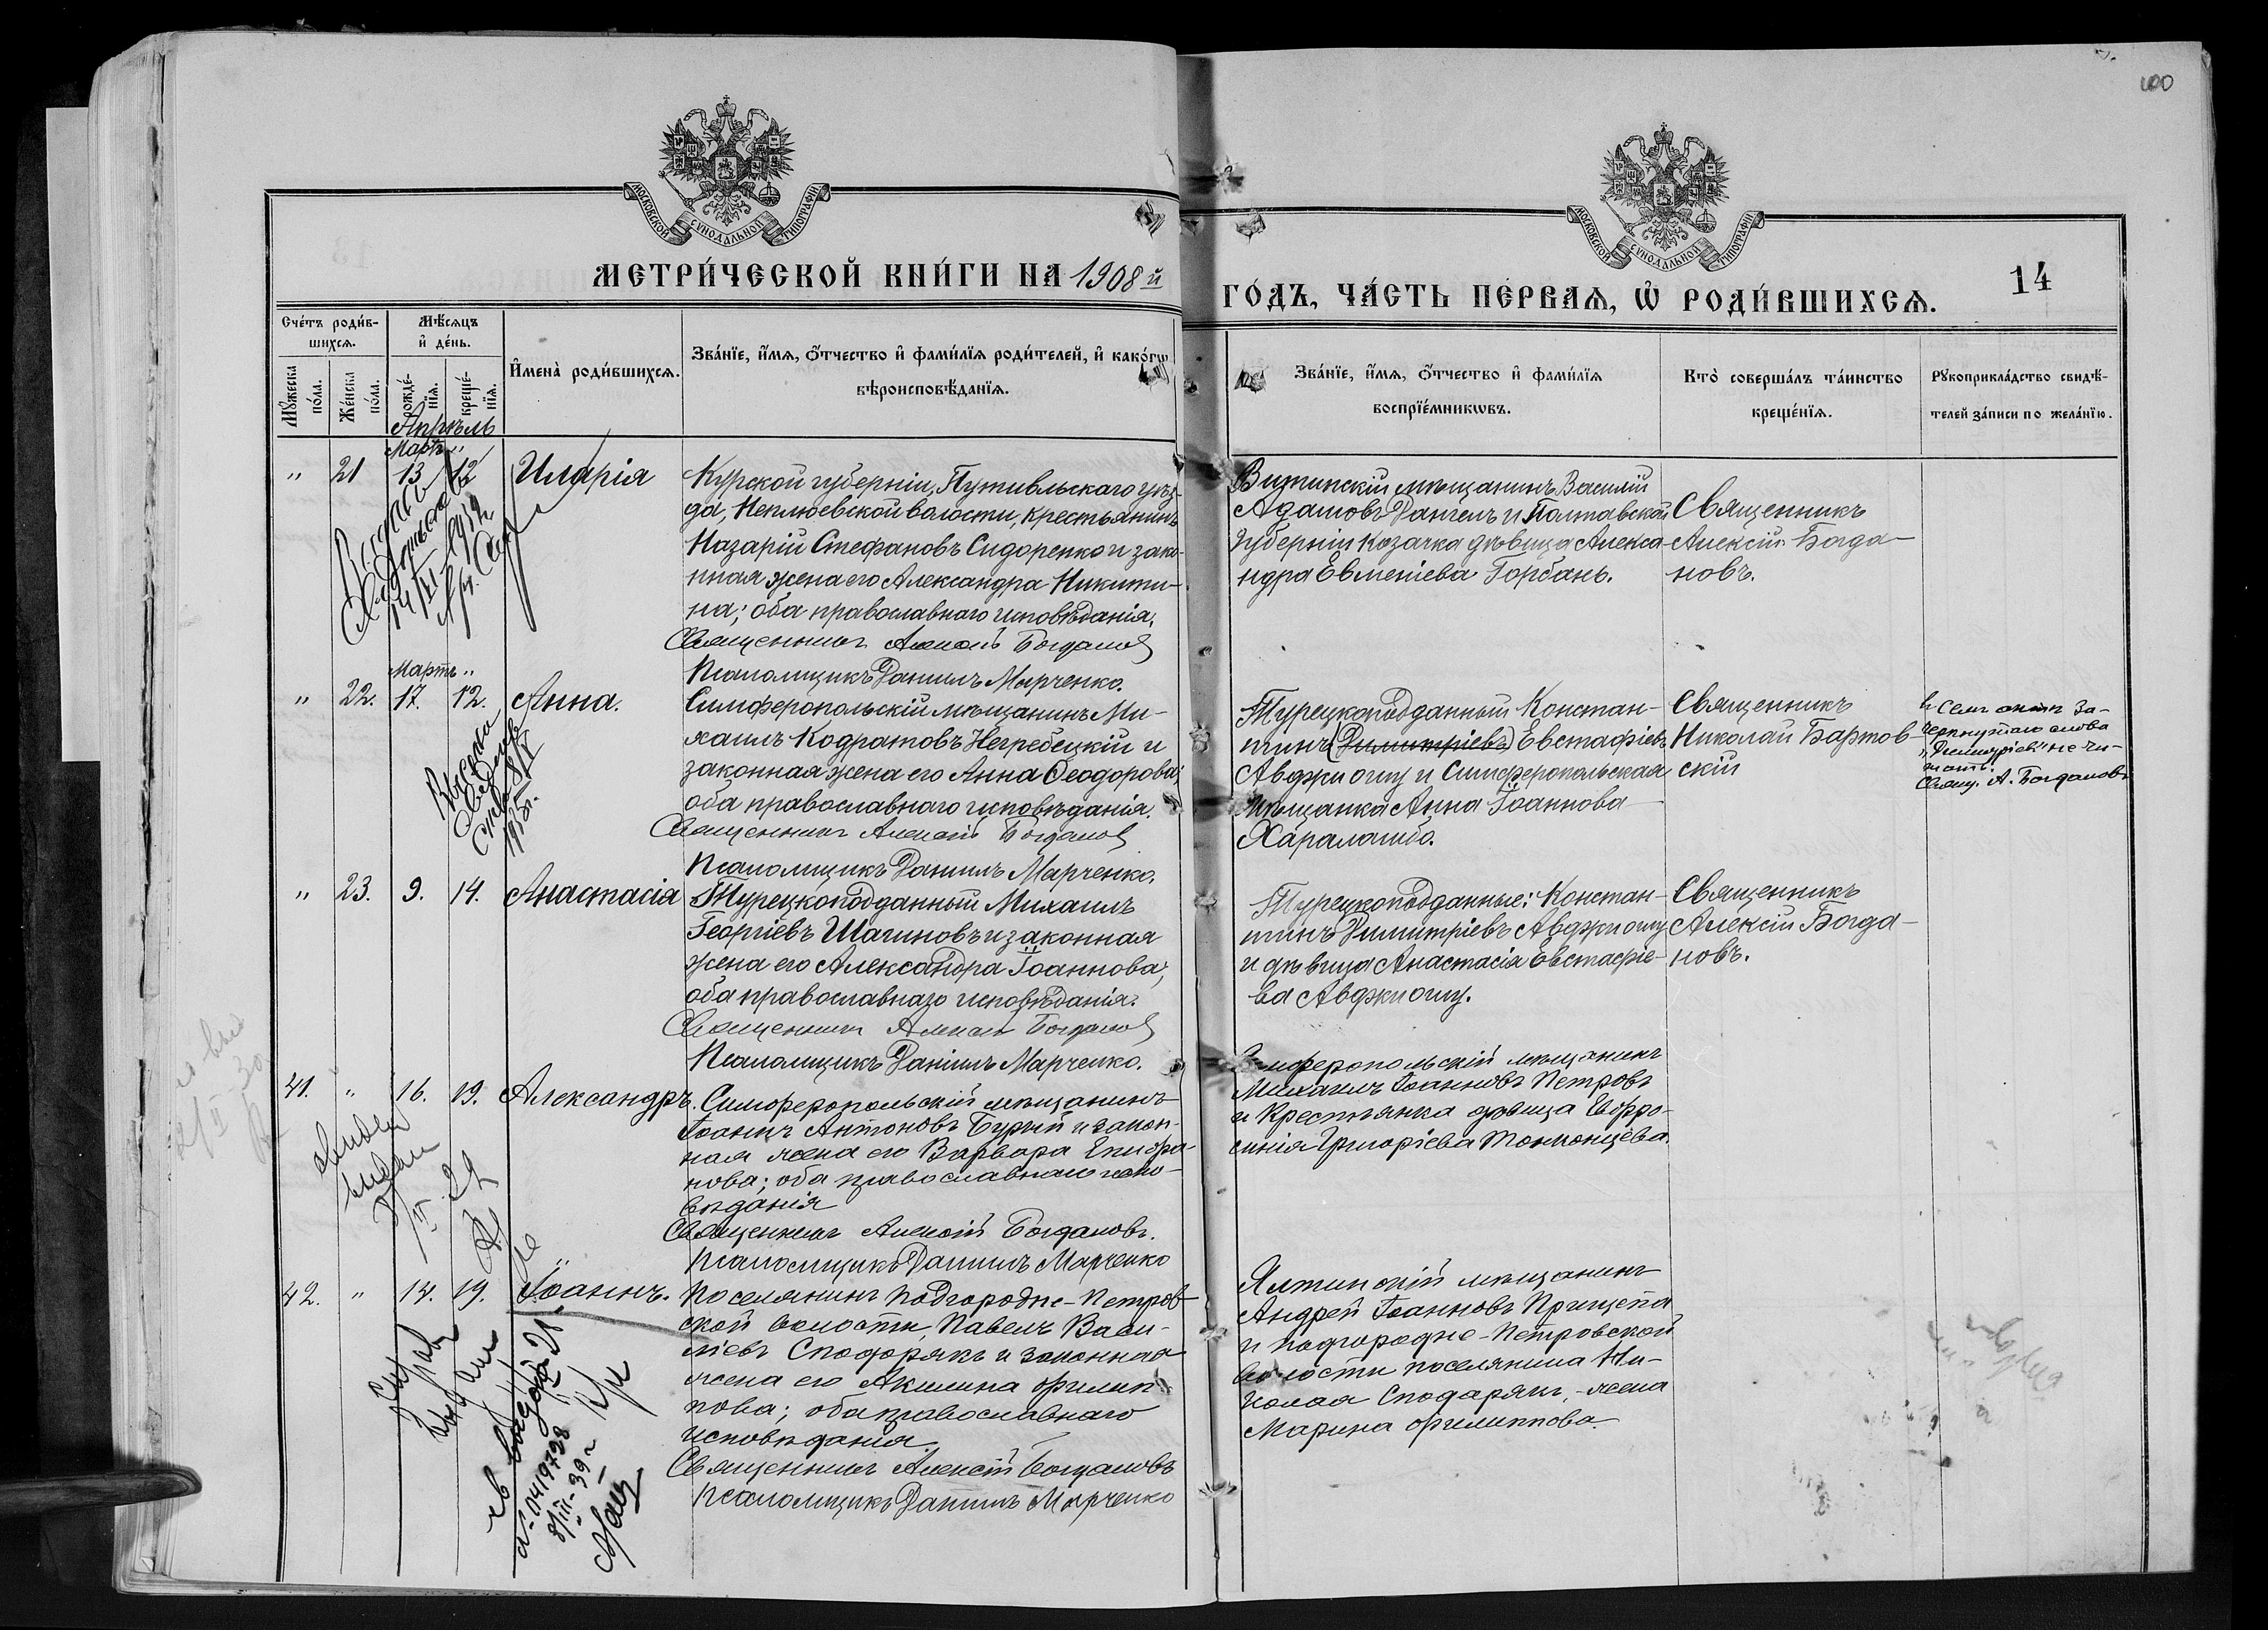 100
МОСКОВСКОЙ СУНОДАЛЬНОЙ ТИПОГРАФІИ
МОСКОВСКОЙ СУНОДАЛЬНОЙ ТИПОГРАФІИ
МЕТРИ́ЧЕСКОЙ КНИ́ГИ НА 1908й
ГО́ДЪ, ЧА́СТЬ ПЕ́РВАѦ, Ѡ РОДИ́ВШИХСѦ.
14
Сче́тъ роди́в-
шихсѧ.
Мꙋ́жеска
по́ла.
Же́нска
по́ла.
Мѣ́сѧцъ
и҆ де́нь.
рожде́-
нїѧ.
креще́-
нїѧ.
И҆мена̀ роди́вшихсѧ.
Зва́нїе, и҆́мѧ, ѻ҆́тчество и҆ фами́лїѧ роди́телей, и҆ како́гѡ
вѣроисповѣ́данїѧ.
Зва́нїе, и҆́мѧ, ѻ҆́тчество и҆ фами́лїѧ
воспрїе́мникѡвъ.
Кто̀ соверша́лъ та́инство
креще́нїѧ.
Рꙋкоприкла́дство свидѣ́-
телей за́писи по жела́нїю.
Апрѣль
Мартъ "
" 21 13 12 Иларія
Курской губерніи, Путивльскаго уѣз-
да, Неплюевской волости, крестьянинъ
Назарій Стефановъ Сидоренко и зако-
нная жена его Александра Никити-
на; оба православнаго исповѣданія.
Священникъ Алексій Богданов
Псаломщикъ Даніилъ Марченко.
Василій
Адамовъ Дангелъ и Полтавской
губерніи козачка дѣвица Алекса-
ндра Евменіева Горбань.
Священникъ
Алексій Богда-
новъ.
14/VI 1919г.
Мартъ "
" 22. 17. 12. Анна.
Симферопольскій мѣщанинъ Ми-
хаилъ Кодратовъ Негребецкій и
законная жена его Анна Ѳеодорова;
оба православнаго исповѣданія.
Священникъ Алексій Богданов
Псаломщикъ Даніилъ Марченко.
Турецкоподданный Констан-
тинъ (Димитріевъ) Евстафіевъ
Авджиоглу и Симферопольская
мѣщанка Анна Іоаннова
Харалашбо.
Священникъ
Николай Бартов-
скій
Въ семъ актѣ за-
черкнутаго слова
„Димитріевъ" не чи-
тать.
Свящ. А. Богдановъ
" 23. 9. 14. Анастасія
Турецкоподданный Михаилъ
Георгіевъ Шагиновъ и законная
жена его Александра Іоаннова;
оба православнаго исповѣданія.
Священникъ Алексій Богданов
Псаломщикъ Даніилъ Марченко.
Турецкоподданные: Констан-
тинъ Димитріевъ Авджиоглу
и дѣвица Анастасія Евстафіе-
ва Авджиоглу.
Священникъ
Алексій Богда-
новъ.
41. " 16. 19. Александръ.
Симферопольскій мѣщанинъ
Іоаннъ Антоновъ Бурый и закон-
ная жена его Варвара Епифа-
нова; оба православнаго испо-
вѣданія
Священникъ Алексій Богдановъ.
Псаломщикъ Даніилъ Марченко
Симферопольскій мѣщанинъ
Михаилъ Іоанновъ Петровъ
и крестьянка дѣвица Евфро-
синія Григорієва Токмонцева.
42. " 14. 19. Іоаннъ.
Поселянинъ Подгородне-Петров-
ской волости, Павелъ Васи-
ліевъ Сподорякъ и законная
жена его Акилина Филип-
пова; оба православнаго
исповѣданія.
Священникъ Алексій Богдановъ
Псаломщикъ Даніилъ Марченко
Ялтинскій мѣщанинъ
Андрей Іоанновъ Прищепа
и Подгородне-Петровской
волости поселянина Ни-
колая Сподарякъ, -жена
Марина Филиппова.
0419798
8/III-39г